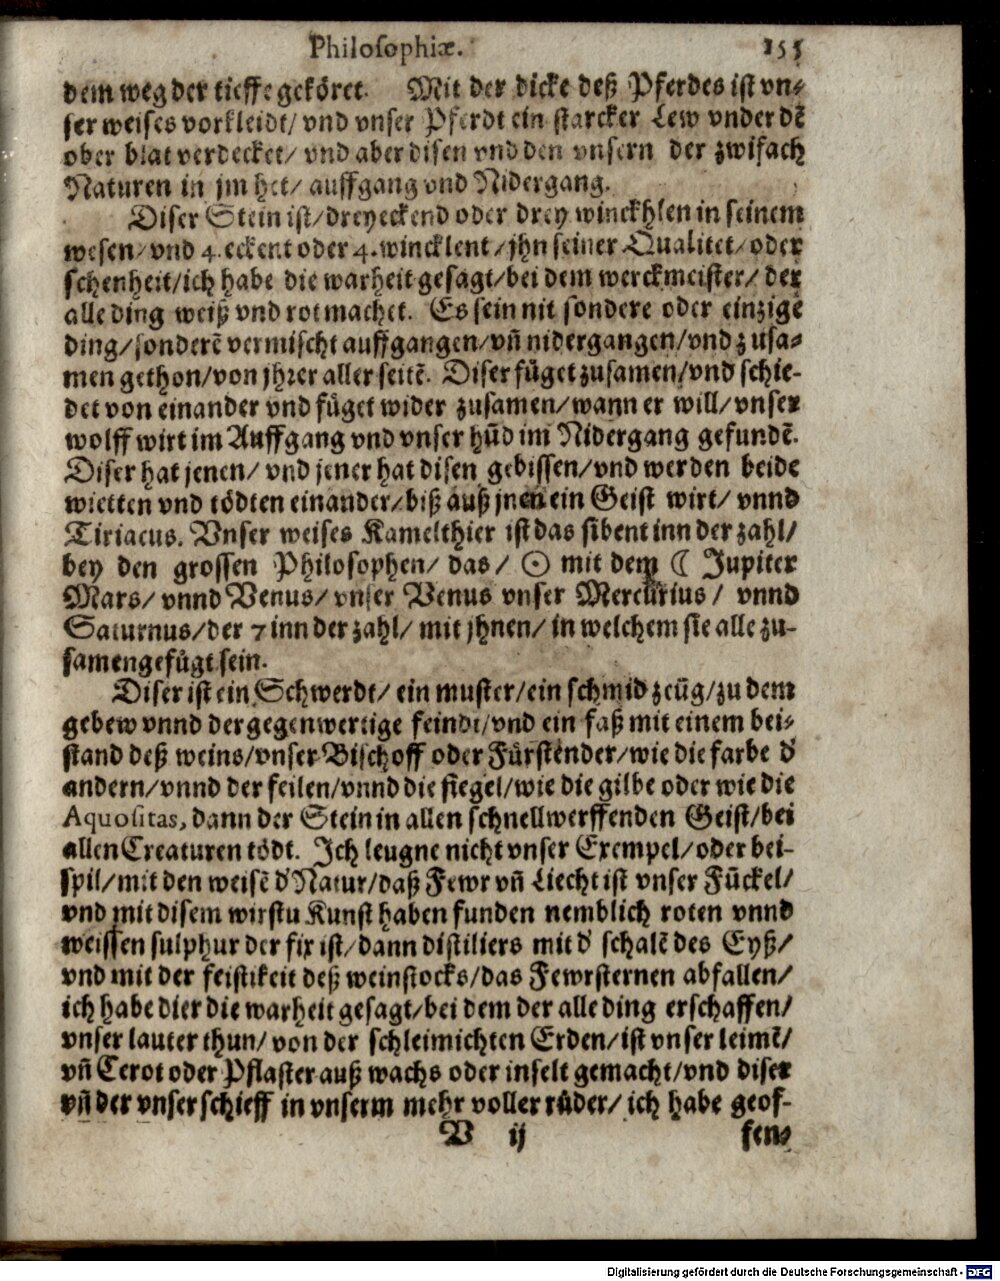 Philosophiæ. 155
dem weg der tieffe geköret. Mit der dicke deß Pferdes ist vn⸗
ser weises vorkleidt/ vnd vnser Pferdt ein starcker Lew vnder dẽ
ober blat verdecket/ vnd aber disen vnd den vnsern der zwifach
Naturen in jm het/ auffgang vnd Nidergang.
Diser Stein ist/ dreyeckend oder drey winckhlen in seinem
wesen/ vnd 4. eckent oder 4. wincklent/ jhn seiner Qualitet/ oder
schenheit/ ich habe die warheit gesagt/ bei dem werckmeister/ der
alle ding weiß vnd rot machet. Es sein nit sondere oder einzige
ding/ sonderẽ vermischt auffgangen/ vñ nidergangen/ vnd zusa⸗
men gethon/ von jhrer aller seitẽ. Diser füget zusamen/ vnd schie-
det von einander vnd füget wider zusamen/ wann er will/ vnser
wolff wirt im Auffgang vnd vnser hũd im Nidergang gefundẽ.
Diser hat jenen/ vnd jener hat disen gebissen/ vnd werden beide
wietten vnd tödten einander/ biß auß jnen ein Geist wirt/ vnnd
Tiriacus. Vnser weises Kamelthier ist das sibent inn der zahl/
bey den grossen Philosophen/ das/ ☉ mit dem ☾ Jupiter
Mars/ vnnd Venus/ vnser Venus vnser Mercurius/ vnnd
Saturnus/ der 7 inn der zahl/ mit jhnen/ in welchem sie alle zu-
samengefügt sein.
Diser ist ein Schwerdt/ ein muster/ ein schmid zeüg/ zu dem
gebew vnnd der gegenwertige feindt/ vnd ein faß mit einem bei⸗
stand deß weins/ vnser Bischoff oder Fürstender/ wie die farbe d'
andern/ vnnd der feilen/ vnnd die siegel/ wie die gilbe oder wie die
Aquositas, dann der Stein in allen schnellwerffenden Geist/ bei
allen Creaturen tödt. Ich leugne nicht vnser Exempel/ oder bei-
spil/ mit den weisẽ d' Natur/ daß Fewr vñ Liecht ist vnser Fückel/
vnd mit disem wirstu Kunst haben funden nemblich roten vnnd
weissen sulphur der fix ist/ dann distiliers mit d' schalẽ des Eyß/
vnd mit der feistikeit deß weinstocks/ das Fewrsternen abfallen/
ich habe dier die warheit gesagt/ bei dem der alle ding erschaffen/
vnser lauter thun/ von der schleimichten Erden/ ist vnser leimẽ/
vñ Cerot oder Pflaster auß wachs oder inselt gemacht/ vnd diser
vñ der vnser schieff in vnserm mehr voller rüder/ ich habe geof-
V ij fen⸗
Digitalisierung gefördert durch die Deutsche Forschungsgemeinschaft - DFG